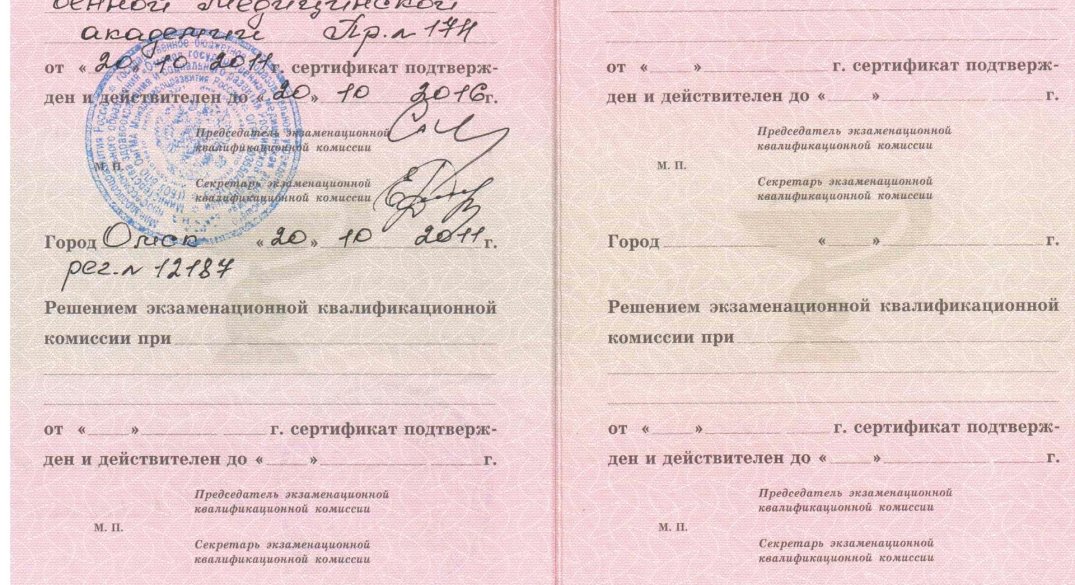 енной Медицинской
академии Пр.№ 174
от « 20 » 10 2011 г. сертификат подтверж-
ден и действителен до « 20 » 10 2016 г.
Председатель экзаменационной
квалификационной комиссии
М. П.
Секретарь экзаменационной
квалификационной комиссии
Город Омск « 20 » 10 2011 г.
рег.№ 12187
Решением экзаменационной квалификационной
комиссии при
от « » г. сертификат подтверж-
ден и действителен до « » г.
Председатель экзаменационной
квалификационной комиссии
М. П.
Секретарь экзаменационной
квалификационной комиссии
от « » г. сертификат подтверж-
ден и действителен до « » г.
Председатель экзаменационной
квалификационной комиссии
М. П.
Секретарь экзаменационной
квалификационной комиссии
Город « » г.
Решением экзаменационной квалификационной
комиссии при
от « » г. сертификат подтверж-
ден и действителен до « » г.
Председатель экзаменационной
квалификационной комиссии
М. П.
Секретарь экзаменационной
квалификационной комиссии